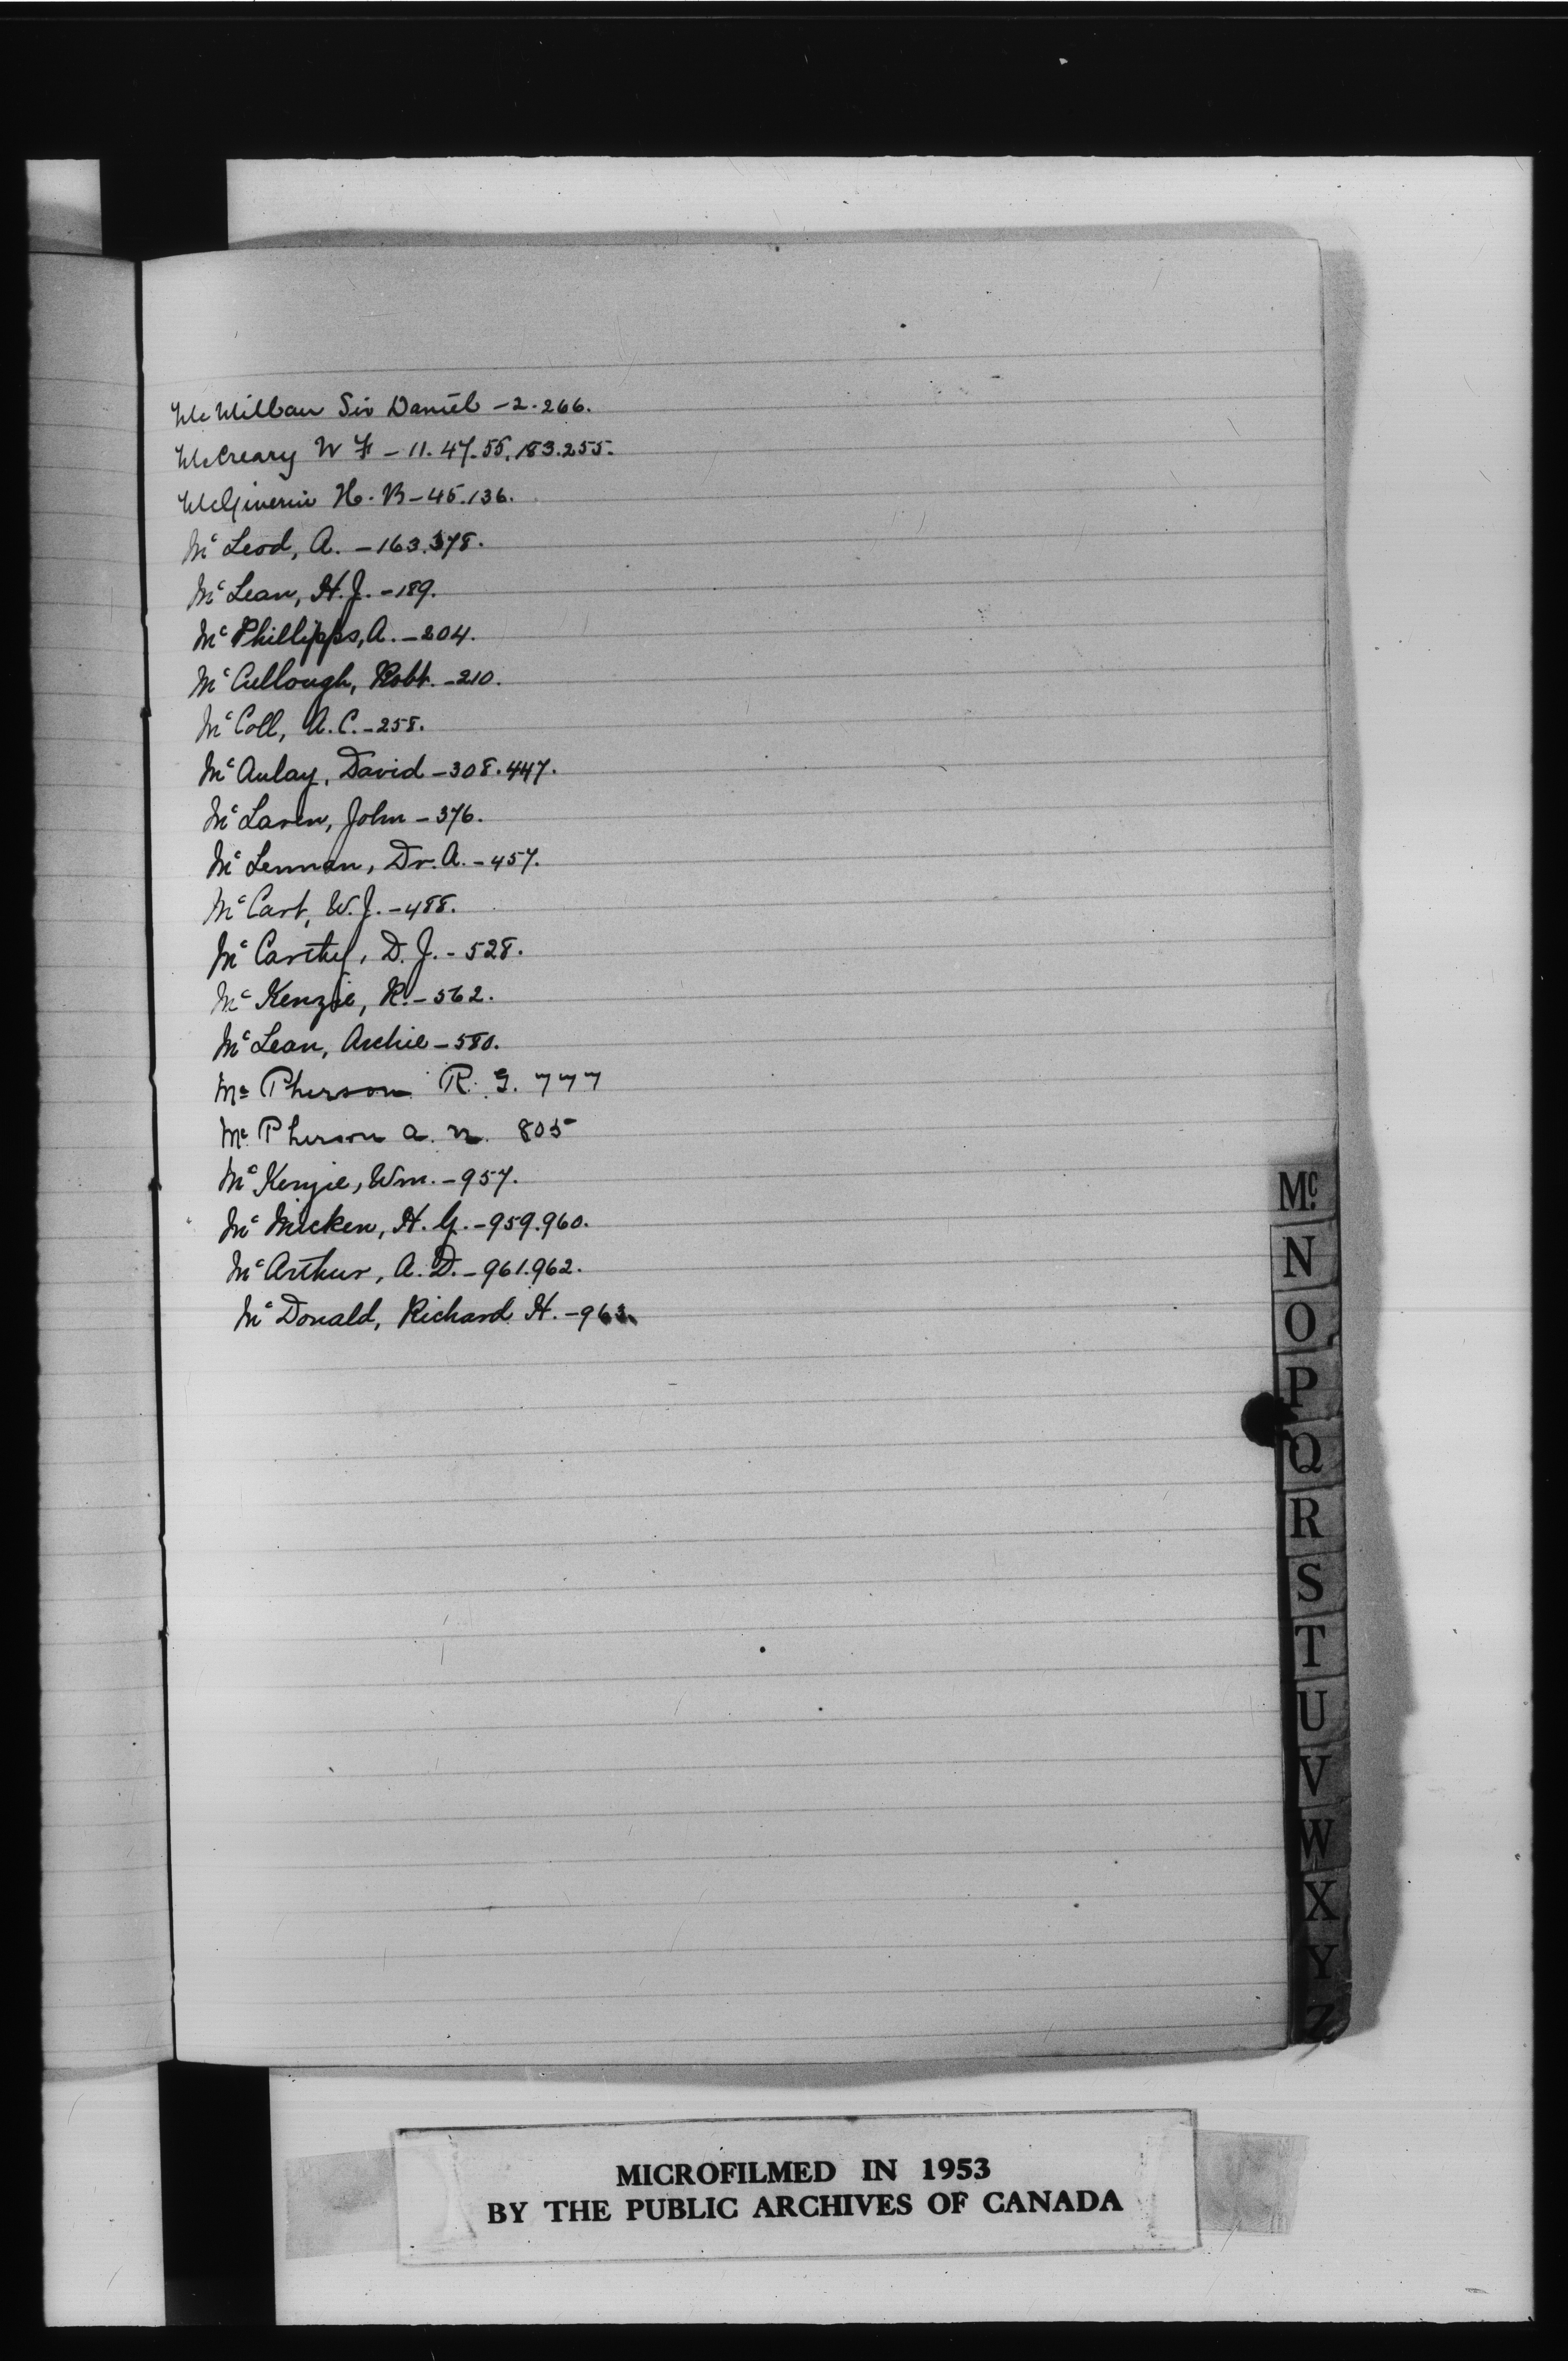 McMillan Sir Daniel - 2. 266.
McCreary W F - 11. 47. 55. 183. 255.
McGiverin H. B - 45. 136.
Mc Leod, A. - 163. 378.
Mc Lean, H. J. - 189.
Mc Phillipps, A. - 204.
Mc Cullough, Robt. - 210.
Mc Coll, A. C. - 258.
Mc Aulay, David - 308. 447.
Mc Laren, John - 376.
Mc Lennan, Dr. A. - 457.
Mc Cart, W. J. - 488.
Mc Carthy, D. J. - 528.
Mc Kenzie, R. - 562.
Mc Lean, Archie - 580.
Mc Pherson R. G. 777
Mc Pherson A. N. 805
Mc Kenzie, Wm. - 957.
Mc Micken, H. G. - 959. 960.
Mc Arthur, A. D. - 961. 962.
Mc Donald, Richard H. - 963.
Mc
N
O
P
Q
R
S
T
U
V
W
X
Y
Z
MICROFILMED IN 1953
BY THE PUBLIC ARCHIVES OF CANADA